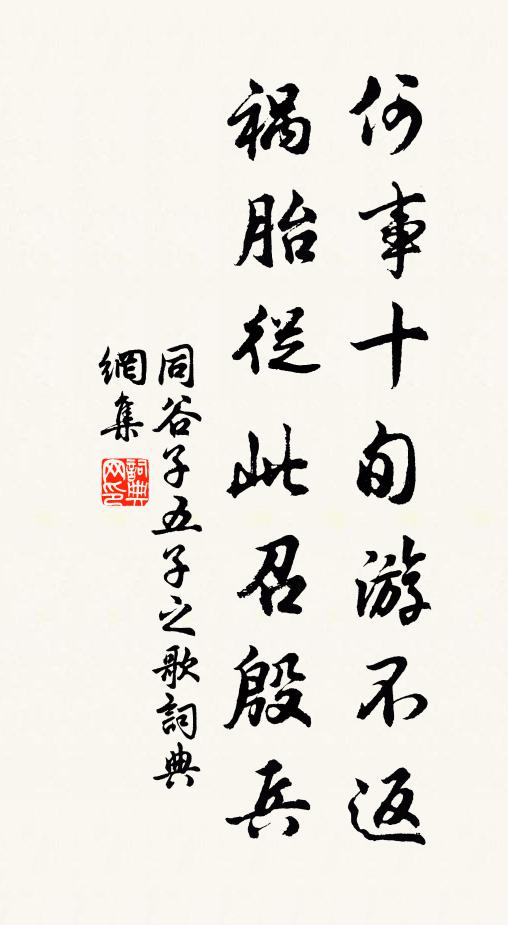 何事十旬游不返
祸胎從此召殷兵
同谷子五子之歌詞典
網集
詞典
网印